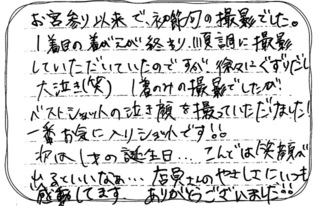 お宮参り以来で、初節句の撮影でした。
1着目の着がえが終わり、順調に撮影
していただいていたのですが徐々にぐずりだし
大泣き(笑) 1着のみの撮影でしたが
ベストショットの泣き顔を撮っていただけました!
一番お気に入りショットです!!
次は1才の誕生日... こんどは笑顔が
出るといいなぁ... 店員さんのやさしさにいつも
感動してます ありがとうございました!!